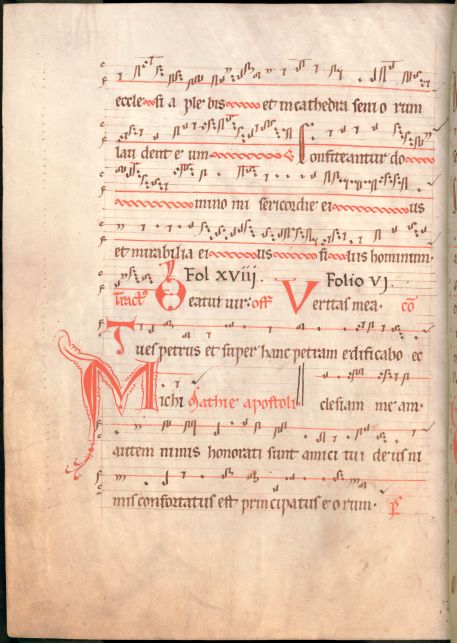 eccle si a ple bis et in cathedra seni o rum
lau dent e um Confiteantur do
mino mi sericordie ei us
et mirabilia ei us fi liis hominum.
Fol xviij. Folio vj.
Tract9 Beatus vir: off Veritas mea. co
Tu es petrus et super hanc petram edificabo ec
Michi Mathie apostoli clesiam me am.
autem nimis honorati sunt amici tui deus ni
mis confortatus est principatus e o rum. ps